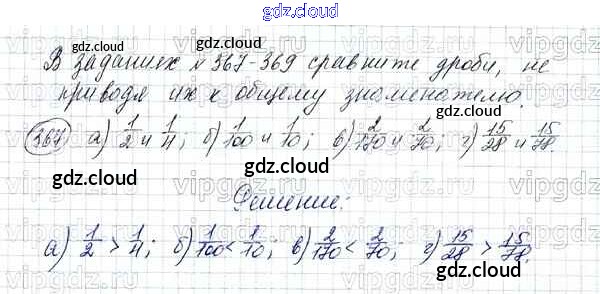 gdz.cloud
gdz.cloud
gdz.cloud
В заданиях № 367-369 сравните дроби, не
приводя их к общему знаменателю.
gdz.cloud
367 а) 1/2 и 1/4; б) 1/100 и 1/10; в) 2/170 и 2/70; г) 15/28 и 15/78.
gdz.cloud gdz.cloud
Решение:
gdz.cloud
а) 1/2 > 1/4; б) 1/100 < 1/10; в) 2/170 < 2/70; г) 15/28 > 15/78.
gdz.cloud gdz.cloud